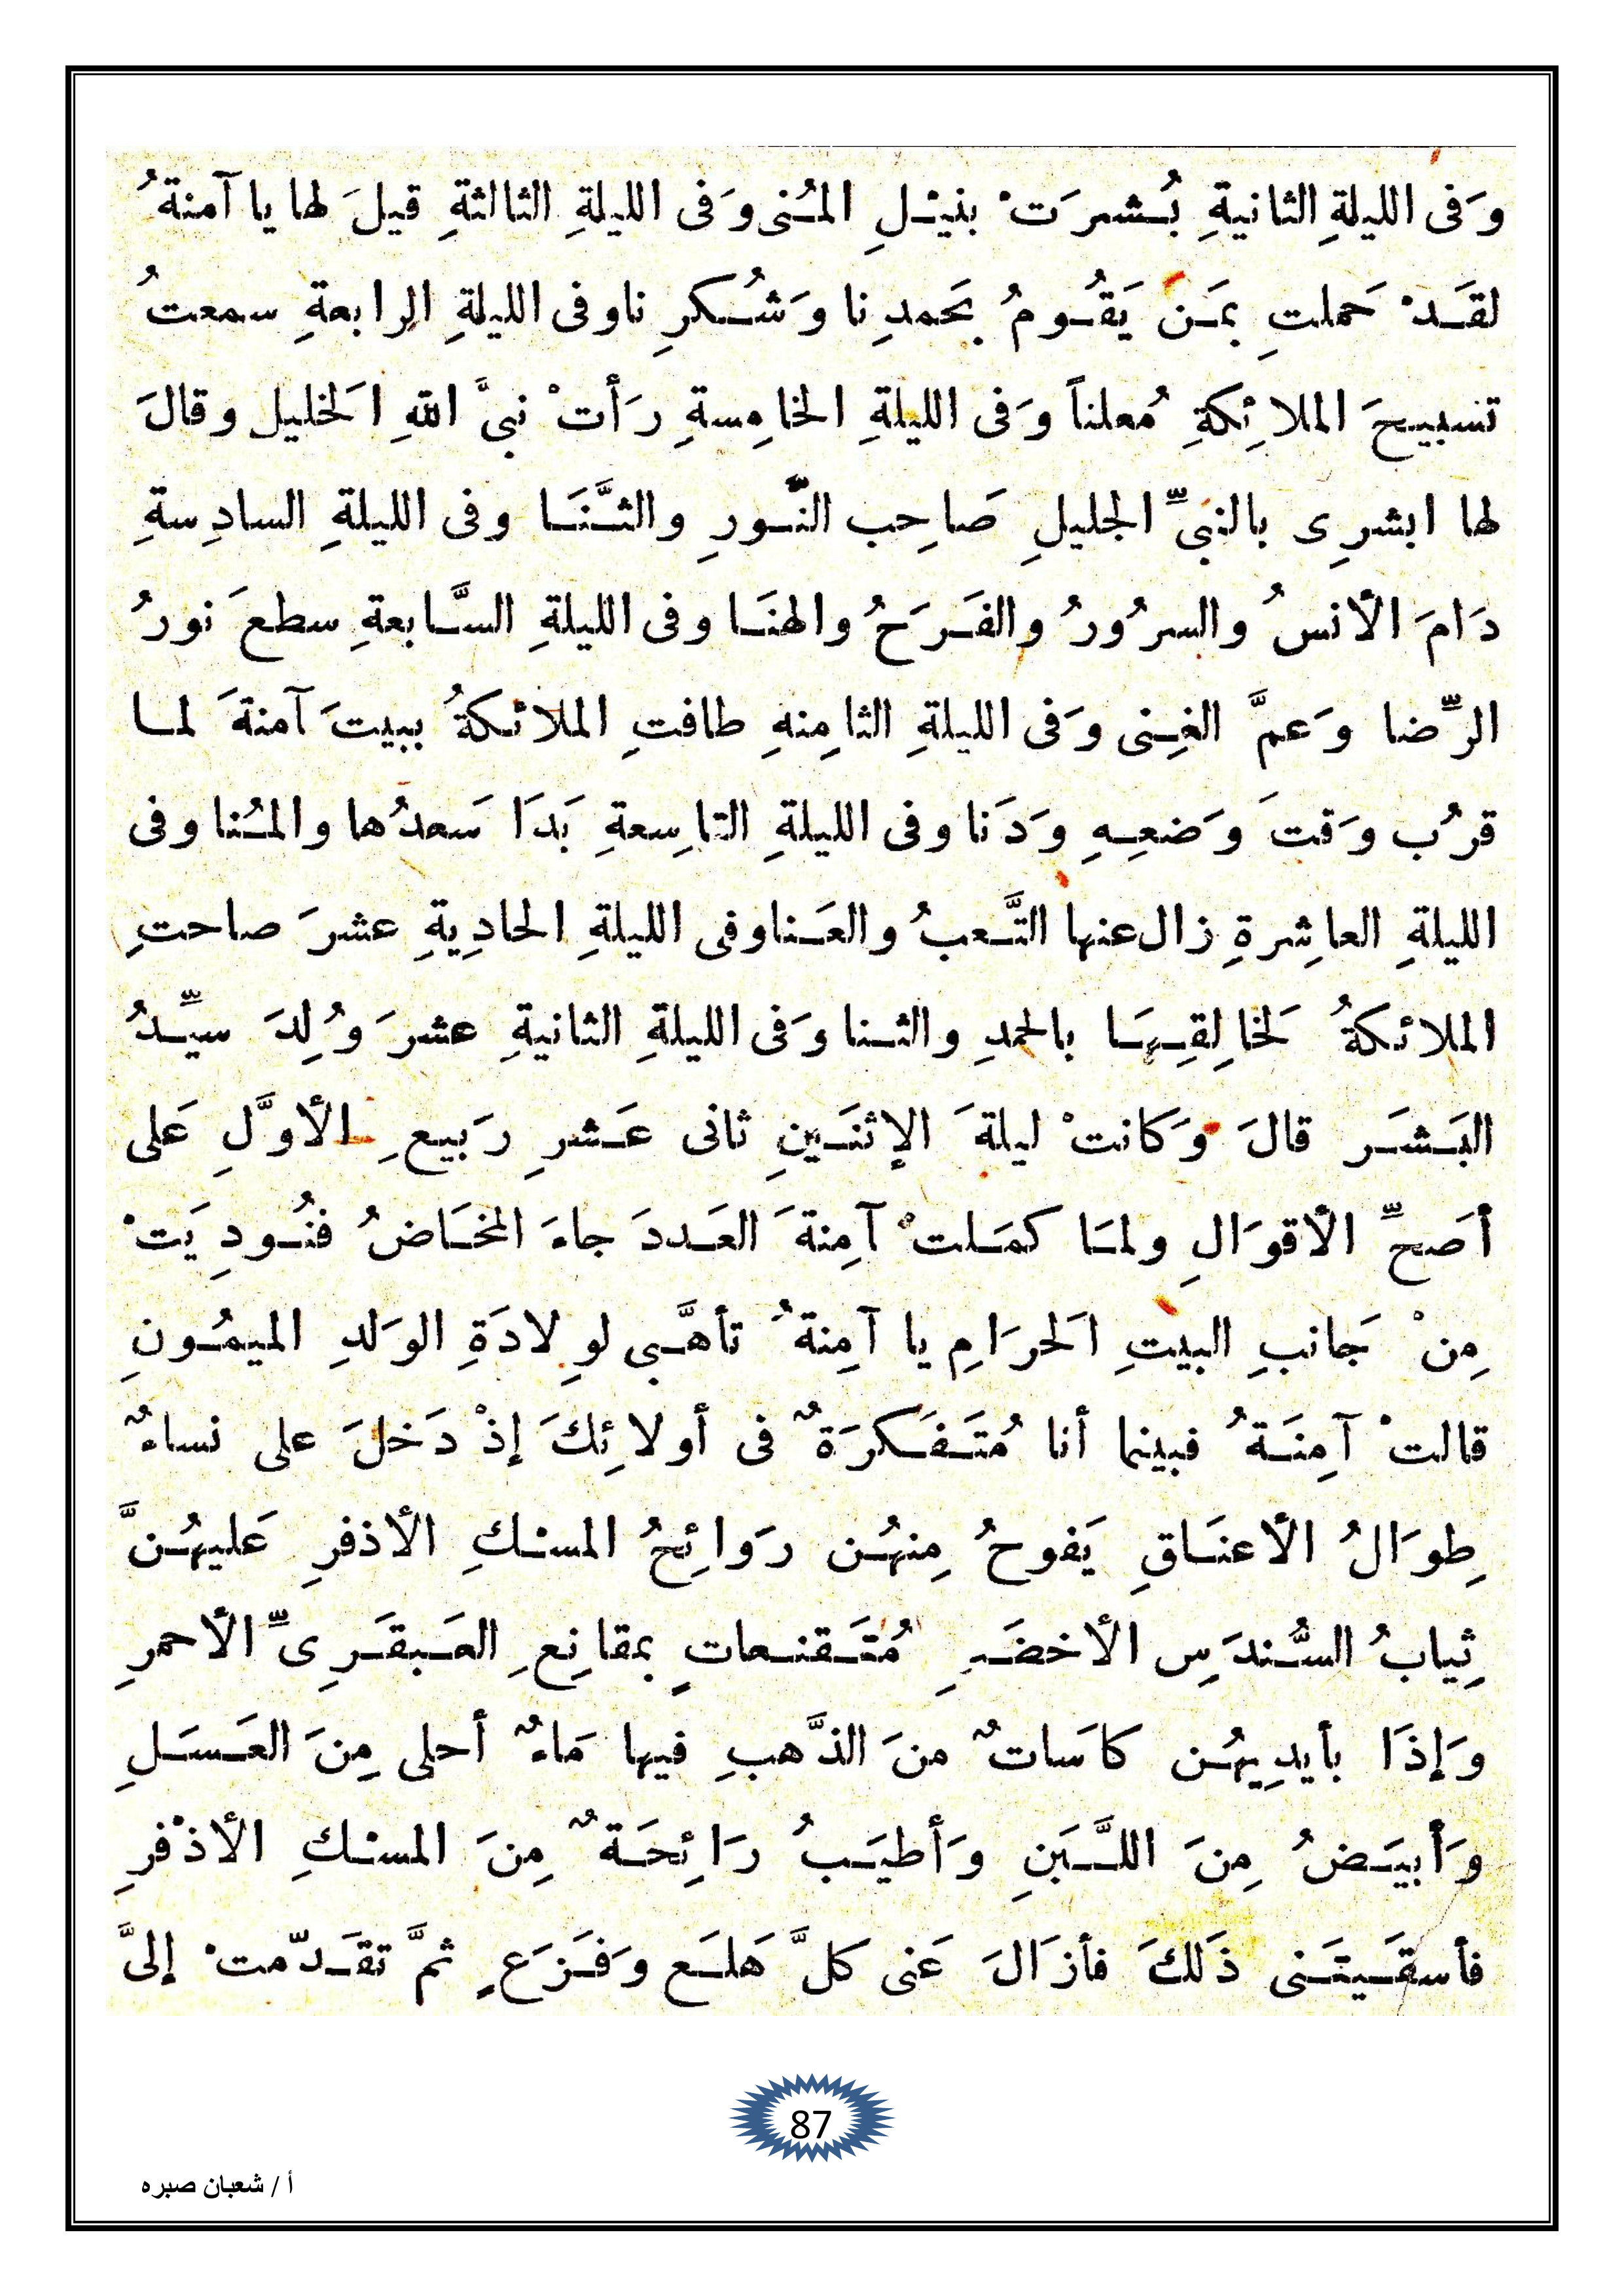 وَفى الليلةِ الثانيةِ بُـشـرَتْ بنيْـلِ المُـنى وَفى الليلةِ الثالثةِ قيلَ لها يا آمنةُ
لقَـدْ حَملتِ بمَـن يَقُـومُ بحَمدِنا وَشُـكرِنا وفى الليلةِ الرابعةِ سمعتُ
تسبيحَ الملائِكةِ مُعلناً وَفى الليلةِ الخامِسةِ رَأتْ نبىَّ اللهِ الَخليل وقالَ
لها ابشرِى بالنبىِّ الجليلِ صَاحِب النّـورِ والثَّـنَـا وفى الليلةِ السادِسةِ
دَامَ الأنسُ والسرُورُ والفَـرَحُ والهنَـا وفى الليلةِ السَّـابعةِ سطعَ نورُ
الرِّضا وَعمَّ الغِـنى وَفى الليلةِ الثامِنهِ طافتِ الملائكةُ ببيتَ آمنةَ لمـا
قرُب وَقتَ وَضعِـهِ وَدَنا وفى الليلةِ التاسِعةِ بَدَا سَعدُها والمُـنا وفى
الليلةِ العاشِرةِ زال عنها التَّـعبُ والعَـنا وفى الليلةِ الحادِيةِ عشرَ صاحتِ
الملائكةُ لَخالِقِـهَـا بالحمدِ والثـنا وَفى الليلةِ الثانيةِ عشرَ وُلِدَ سيِّـدُ
البَـشَـر قالَ وَكانتْ ليلةَ الإثنَـينِ ثانى عَـشرِ رَبيعِ الأوَّلِ عَلى
أصَحِّ الأقوَالِ ولمَـا كمَـلتْ آمِنةَ العَـددَ جاءَ المخَـاضُ فنُـودِيَتْ
مِنْ جَانبِ البيتِ الَحرَامِ يا آمِنةُ تأهَّـبى لوِلادَةِ الوَلدِ الميمُـونِ
قالتْ آمِنَـةُ فبينما أنا مُتَـفَـكرَةٌ فى أولائِكَ إذْ دَخلَ على نساءٌ
طِوَالُ الأعنَـاقِ يَفوحُ مِنهُـن رَوائِحُ المسْـكِ الأذفرِ عَليهُـنَّ
ثِيابُ السُّـندَسِ الأخضَـرِ مُتَـقنـعاتٍ بمقانِعِ العَـبقَـرِىِّ الأحمرِ
وَإذَا بأيدِيهُـن كاَسَاتٌ منَ الذَّهبِ فيها مَاءٌ أحلى مِنَ العَـسَـلِ
وَأبيَـضُ مِنَ اللَّـبَنِ وَأطيَـبُ رَائِحَـةٌ مِنَ المسْـكِ الأذْفرِ
فأسقَـيتَـنى ذَلكَ فأزَالَ عَنى كلَّ هَلـَـع وَفَـزَعٍ ثمَّ تقَـدّمتْ إلىَّ
87
أ / شعبان صبره